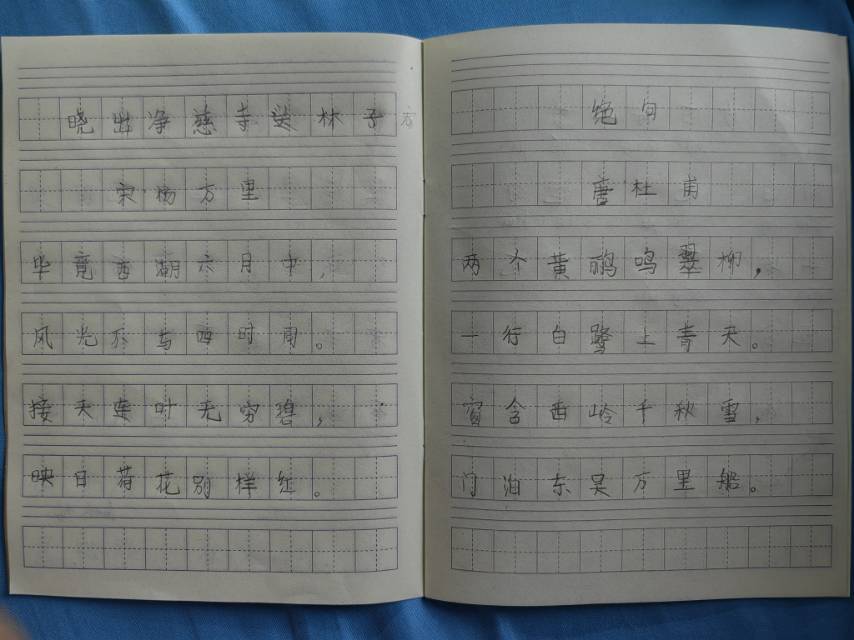 晓出净慈寺送林子方
宋杨万里
毕竟西湖六月中,
风光不与四时同。
接天连叶无穷碧,
映日荷花别样红。
绝句
唐杜甫
两个黄鹂鸣翠柳,
一行白鹭上青天。
窗含西岭千秋雪,
门泊东吴万里船。